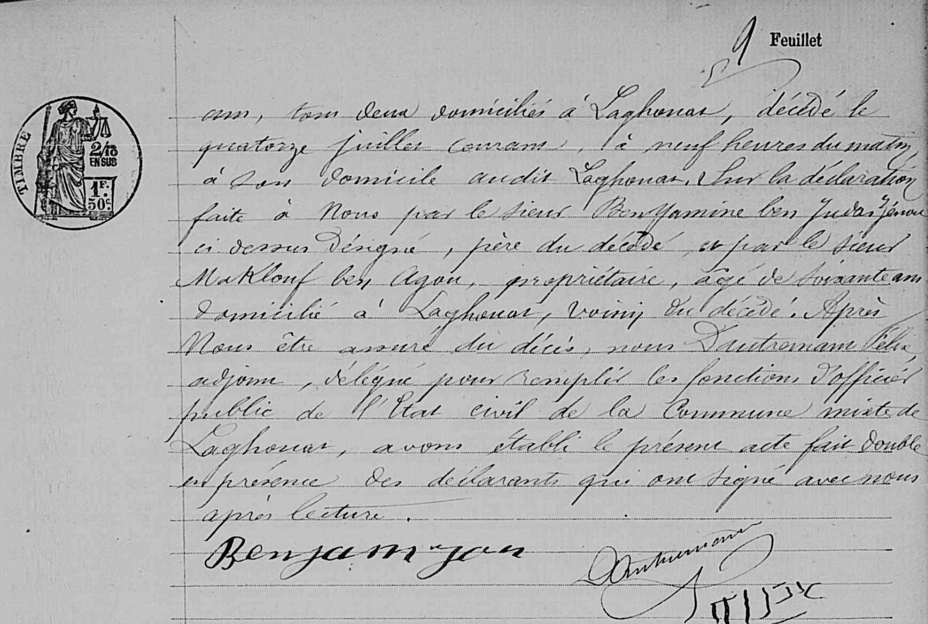 9 Feuillet
TIMBRE
2/10
EN SUS
1 F.
50 c.
ans, tous deux domiciliés à Laghouat, décédé le
quatorze juillet courant, à neuf heures du matin,
à son domicile audit Laghouat. Sur la déclaration
faite à Nous par le sieur Benyamine ben Judas
ci dessus désigné, père du décédé, et par le sieur
Maklouf ben Azou, propriétaire, âgé de soixante ans
domicilié à Laghouat, voisin du décédé. Après
Nous être assuré du décès, nous Dautremant
adjoint, délégué pour remplir les fonctions d'officier
public de l'Etat civil de la Commune mixte de
Laghouat, avons établi le présent acte fait double
en présence des déclarants qui ont signé avec nous
après lecture.